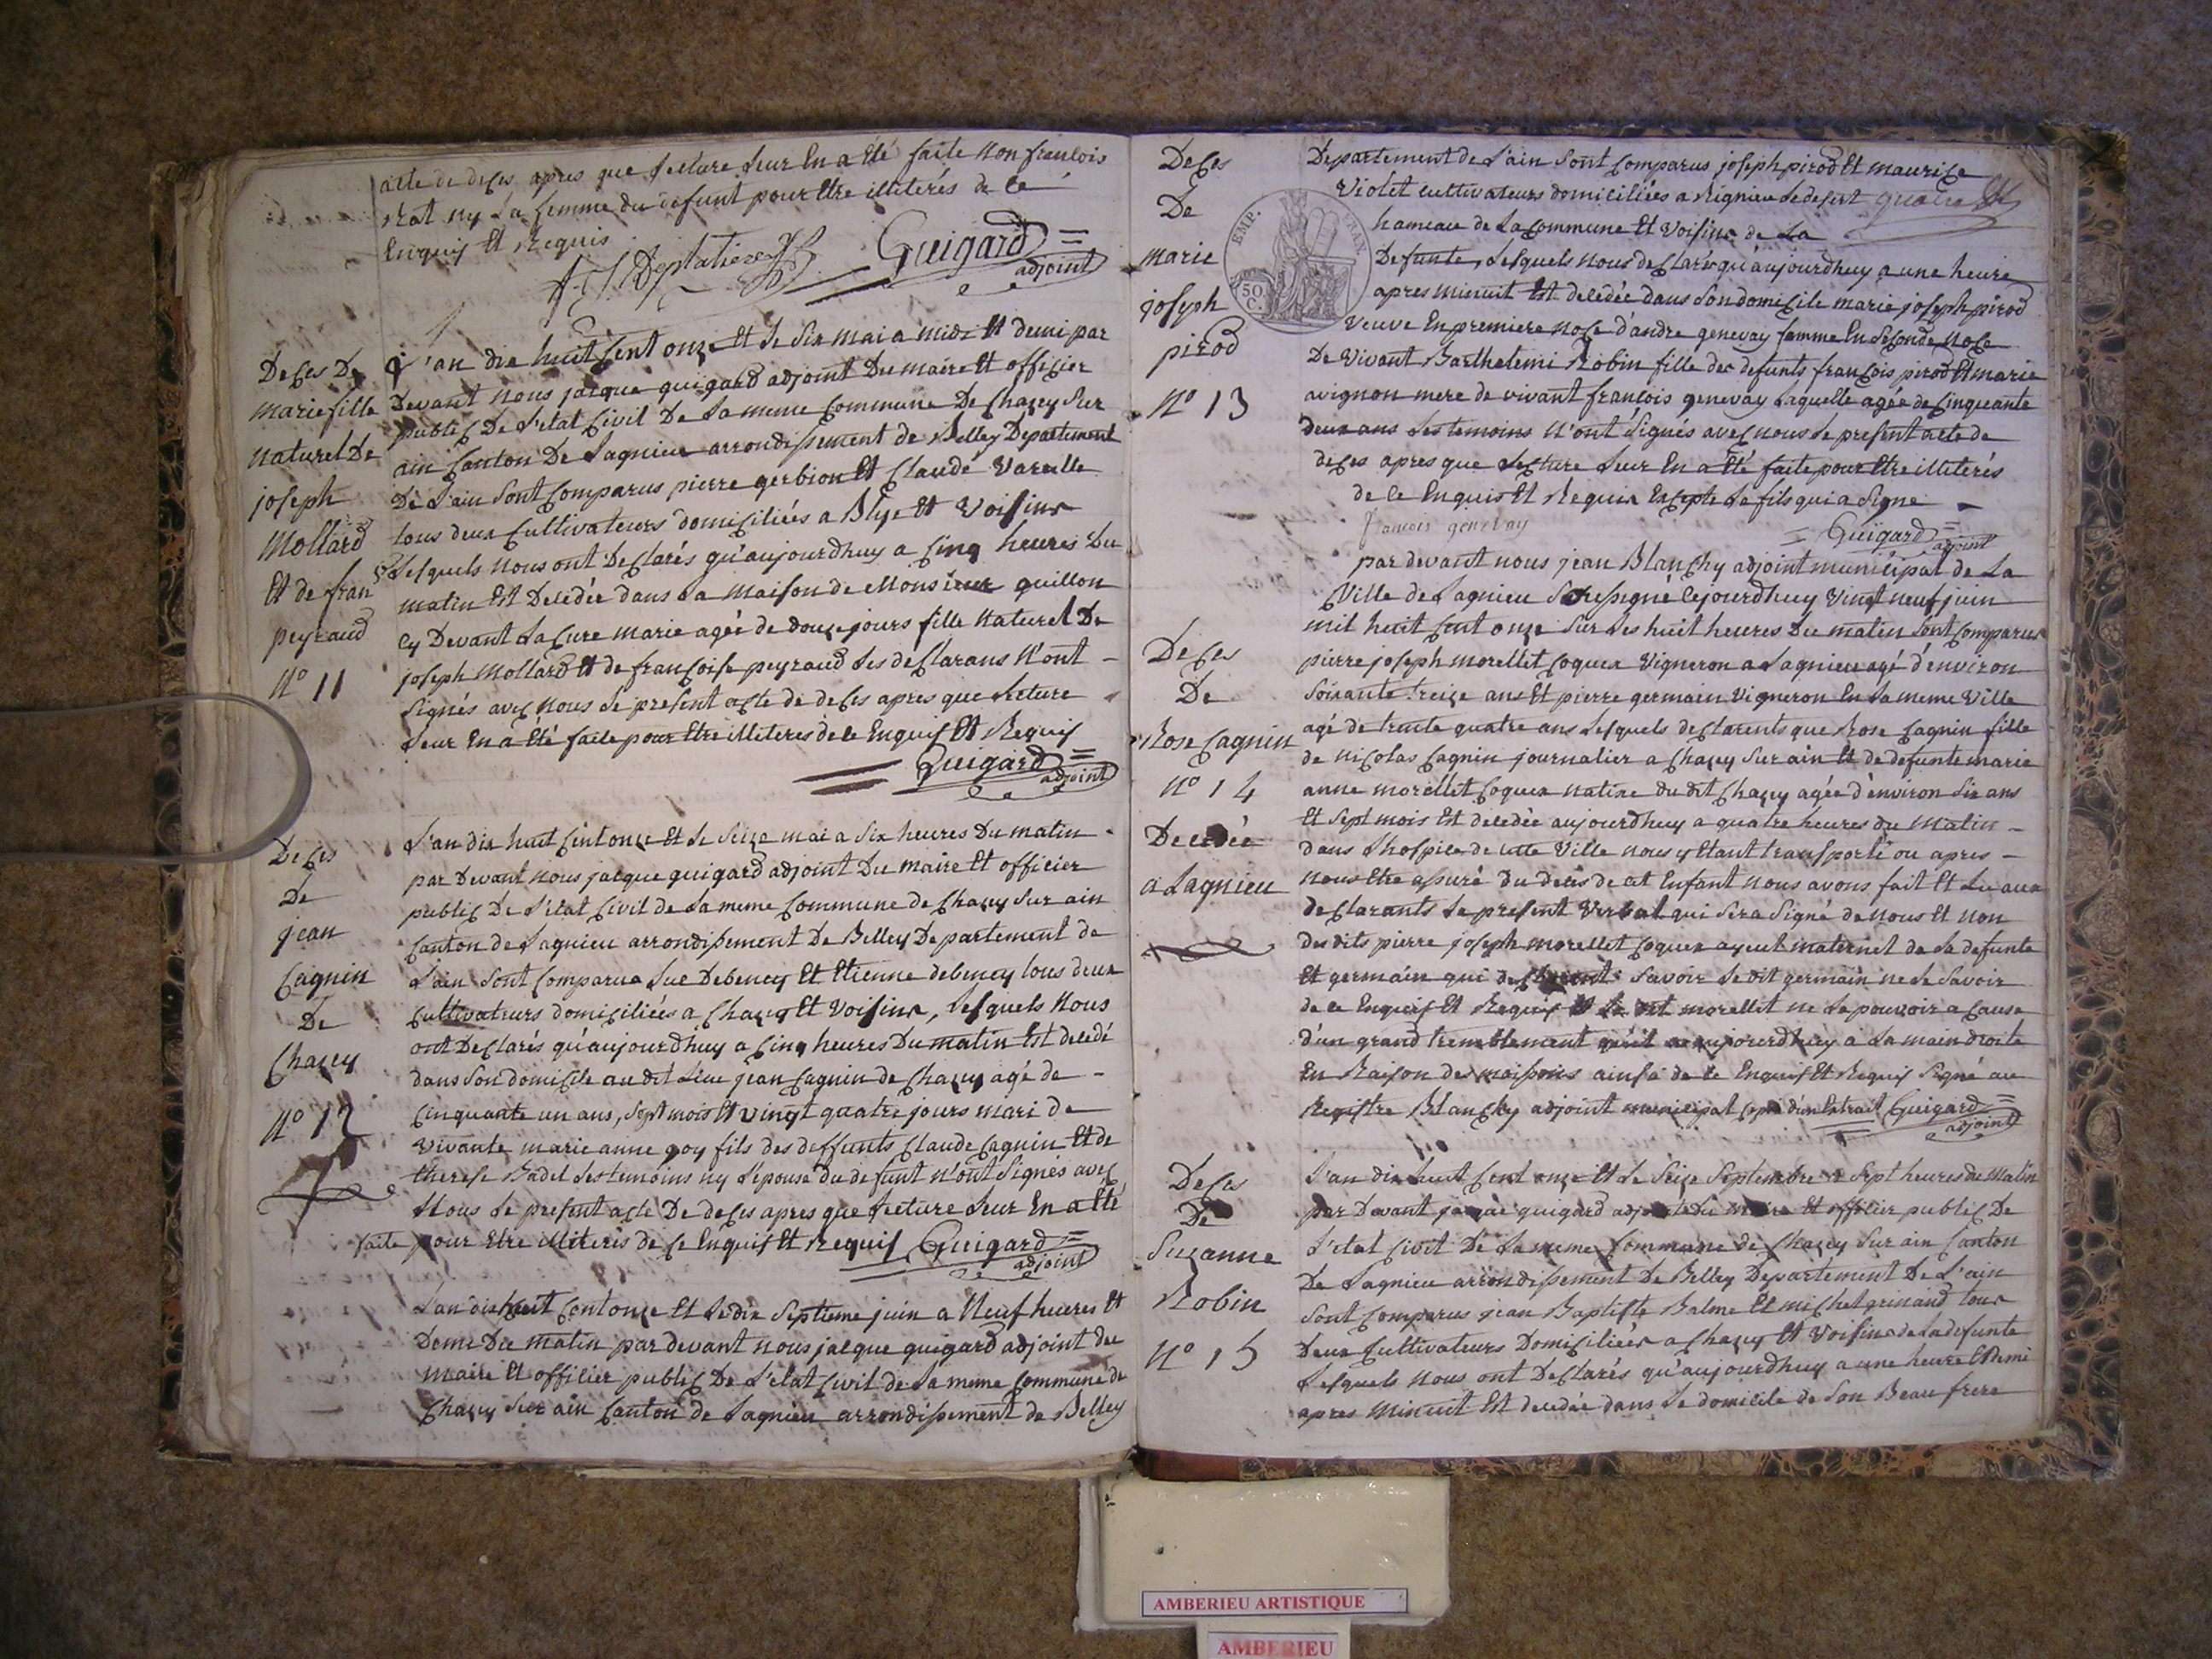 acte de deces apres que lecture leur En a Eté faite Non francois
Rat ny La femme du defunt pour Etre illiterés de ce
Enquis Et Requis
Guigard
adjoint
Deces De
marie fille
naturel De
joseph
Mollard
Et de fran
peyraud
N° 11
L'an dix huit Cent onze Et le Six mai a midi Et demi par
Devant nous jacque guigard adjoint Du maire Et officier
public De L'etat Civil De La meme Commune De Chazey Sur
ain Canton De Lagnieu arrondissement de Belley Departement
De L'ain Sont Comparus pierre gerbion Et Claude Vareille
tous deux Cultivateurs domiciliés a Blye Et Voisins
Lesquels nous ont Declarés qu'aujourdhuy a Cinq heures Du
matin Est Decedée dans La maison de Monsieur guillon
cy Devant La Cure marie agée de douze jours fille Naturel De
joseph Mollard Et de francoise peyraud Les declarans N'ont
Signés avec Nous Le present acte de deces apres que Lecture
Leur En a Eté faite pour Etre illiteres de ce Enquis Et Requis
Guigard
adjoint
Deces
De
jean
Cagnin
De
Chazey
N° 12
L'an dix huit Cent onze Et Le Seize mai a Six heures Du matin
par Devant nous jacque guigard adjoint Du maire Et officier
public De L'etat Civil de La meme Commune de Chazey Sur ain
Canton de Lagnieu arrondissement De Belley Departement de
L'ain Sont Comparus Luc Debeney Et Etienne debeney tous deux
Cultivateurs domiciliées a Chazey Et Voisins, Lesquels Nous
ont Declarés qu'aujourdhuy a Cinq heures Du matin Est decedé
dans Son domicile au dit Lieu jean Cagnin de Chazey agé de
Cinquante un ans, Sept mois Et vingt quatre jours mari de
Vivante marie anne goy fils des deffunts Claude Cagnin Et de
therese Badel Les temoins ny L'epouse du defunt n'ont Signés avec
Nous Le present acte De deces apres que Lecture Leur En a Eté
faite pour Etre illiterés de ce Enquis Et Requis Guigard
adjoint
L'an dix huit Cent onze Et Le dix Septieme juin a Neuf heures Et
Demi Du matin par devant nous jacque guigard adjoint du
maire Et officier public De L'etat Civil de La meme Commune de
Chazey Sur ain Canton de Lagnieu arrondissement de Belley
Deces
De
marie
joseph
pirod
N° 13
EMP.
FRAN.
50
C.
Departement de L'ain Sont Comparus joseph pirod Et maurice
Violet cultivateurs domiciliées a Rignieu Le desert
hameau de La Commune Et Voisins de La
Defunte, Lesquels nous declarés qu'aujourdhuy a une heure
apres minuit Est decedée dans Son domicile marie joseph pirod
Veuve En premiere Noce d'andre genevay femme En Seconde Noce
De Vivant Barthelemi Robin fille des defunts francois pirod Et marie
avignon mere de vivant francois genevay Laquelle agée de Cinquante
deux ans Les temoins N'ont Signés avec nous Le present acte de
deces apres que Lecture Leur En a Eté faite pour Etre illiterés
de ce Enquis Et Requis Excepte Le fils qui a Signe
francois genevay
Guigard
adjoint
Deces
De
Rose Cagnin
N° 14
Decedée
a Lagnieu
par devant nous jean Blanchy adjoint municipal de La
Ville de Lagnieu Soussigné Cejourdhuy Vingt neuf juin
mil huit Cent onze Sur Les huit heures Du matin Sont Comparus
pierre joseph morellet Coquex Vigneron a Lagnieu agé d'environ
Soixante treize ans Et pierre germain Vigneron En La meme Ville
agé de trente quatre ans Lesquels declarents que Rose Cagnin fille
de nicolas Cagnin journalier a Chazey Sur ain Et de defunte marie
anne morellet Coquex native du dit Chazey agée d'environ Six ans
Et Sept mois Est decedée aujourdhuy a quatre heures du matin
dans L'hospice de cette Ville nous y Etant transporté ou apres
nous Etre assuré du deces de cet Enfant nous avons fait Et Lu aux
declarants Le present Verbal qui Sera Signé de nous Et non
des dits pierre joseph morellet Coquex ayeul maternel de La defunte
Et germain qui Savoir Le dit germain ne Le Savoir
de ce Enquis Et Requis Et Le dit morellet ne Le pouvoir a Cause
d'un grand tremblement qu'il a aujourdhuy a La main droite
En Raison des moissons ainsi de ce Enquis Et Requis Signé au
Registre Blanchy adjoint municipal Copie d'un Extrait Guigard
adjoint
Deces
De
Suzanne
Robin
N° 15
L'an dix huit Cent onze Et Le Seize Septembre a Sept heures du Matin
par Devant jacque guigard adjoint Du maire Et officier public De
L'etat Civil De La meme Commune de Chazey Sur ain Canton
De Lagnieu arrondissement De Belley Departement De L'ain
Sont Comparus jean Baptiste Balme Et michel grinand tous
Deux Cultivateurs Domiciliées a Chazey Et Voisins de La defunte
Lesquels nous ont Declarés qu'aujourdhuy a une heure Et Demi
apres Minuit Est decedée dans Le domicile de Son Beau frere
AMBERIEU ARTISTIQUE
AMBERIEU